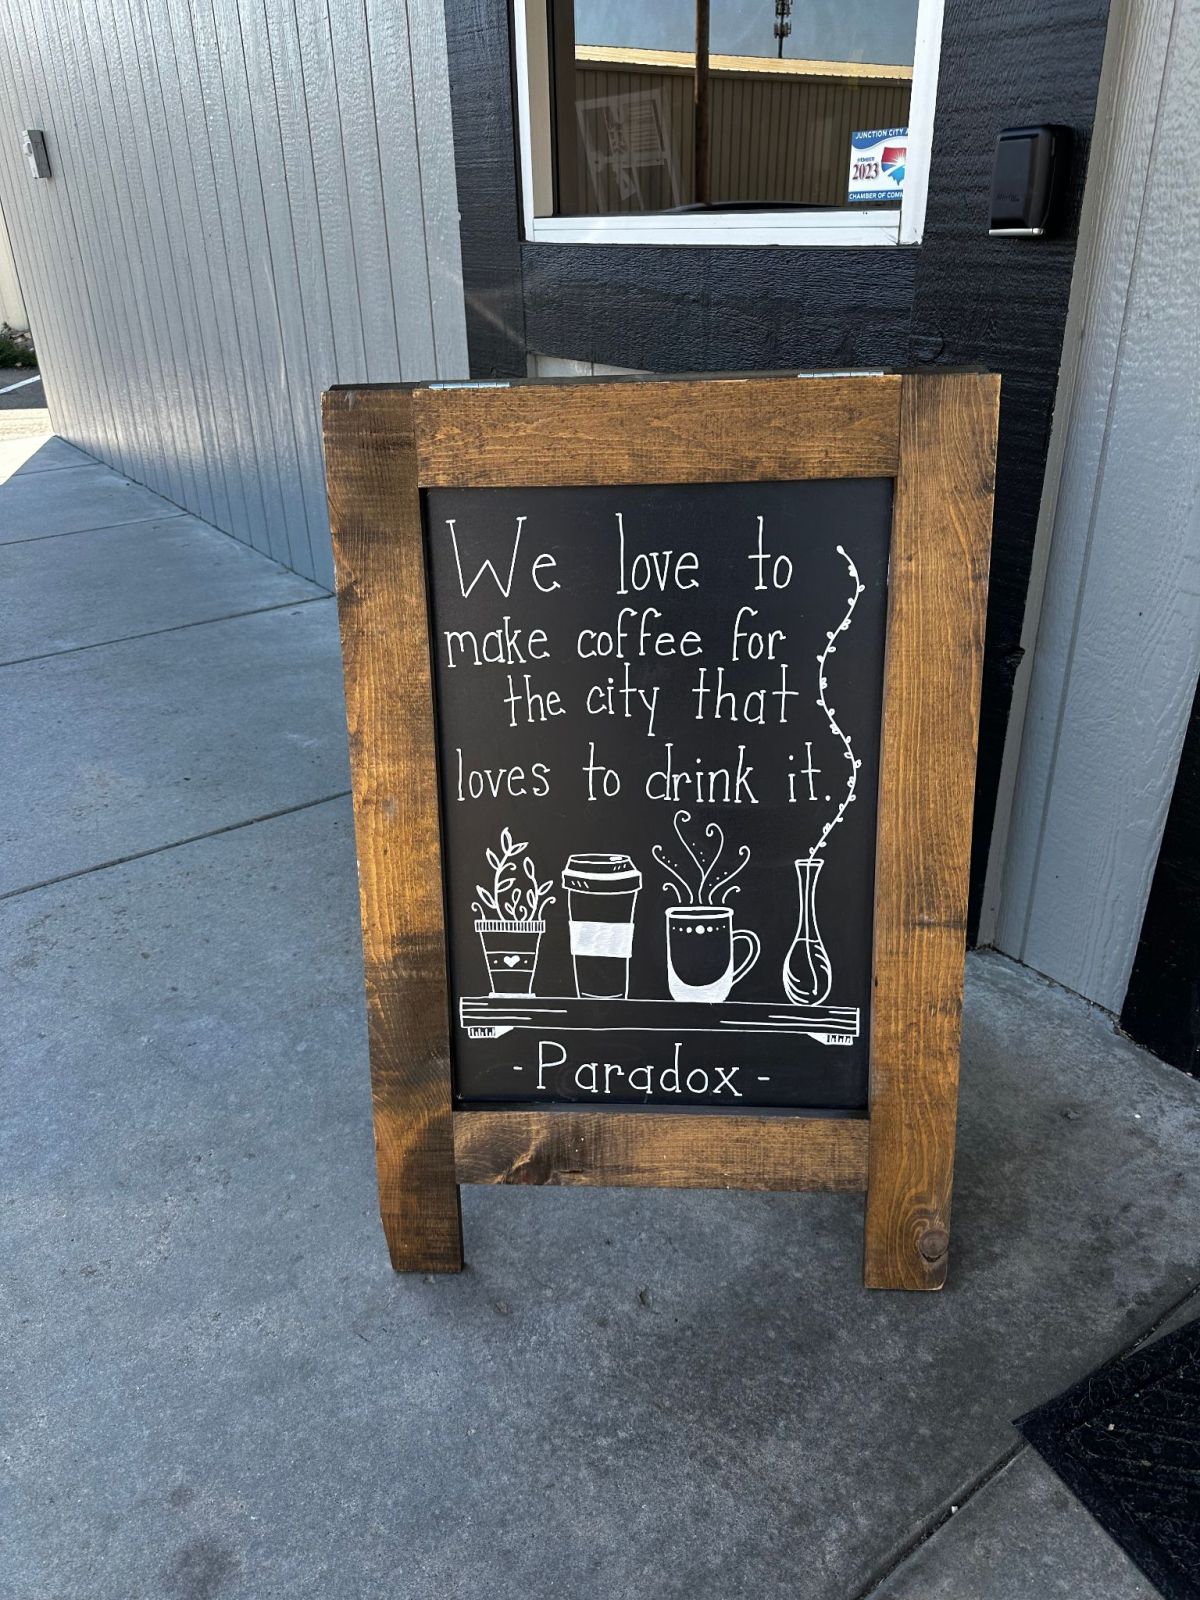 JUNCTION CITY A
MEMBER
2023
CHAMBER OF COM
We love to
make coffee for
the city that
loves to drink it.
- Paradox -